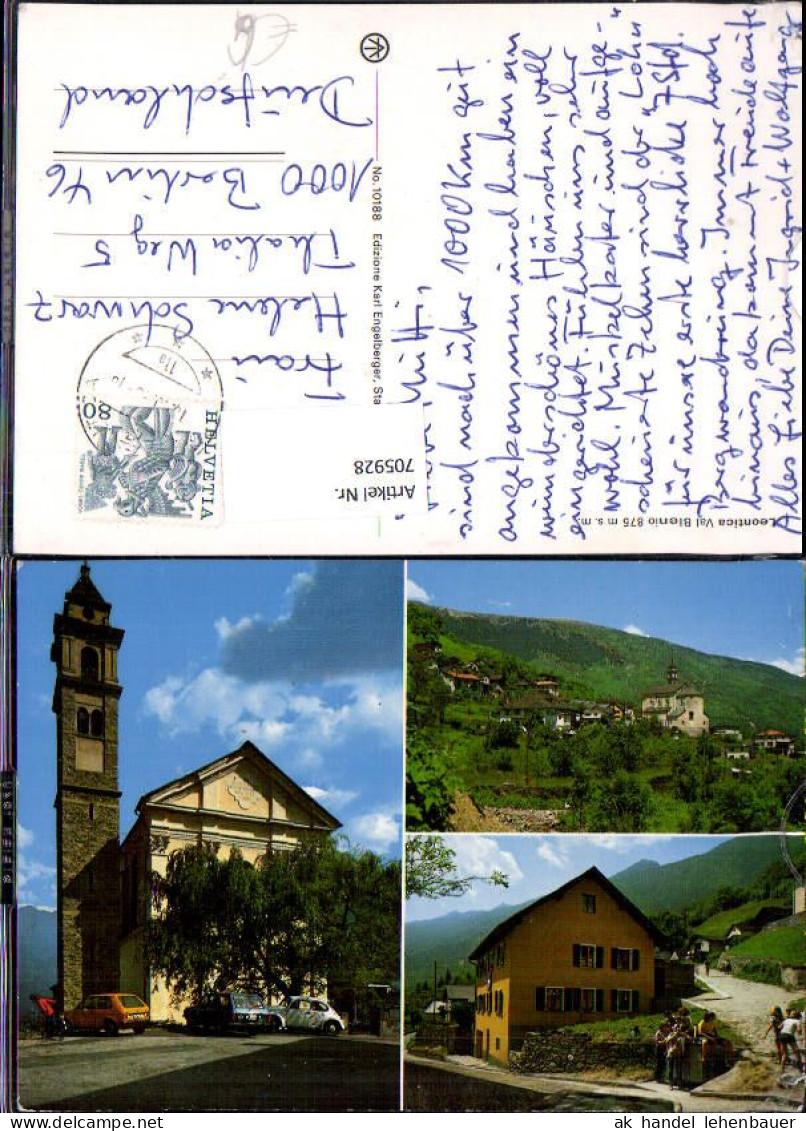 Leontica Val Blenio 875 m s. m.
Liebe Mutti,
sind nach über 1000 Km gut
angekommen und haben ein
wunderschönes Häuschen, voll
eingerichtet. Fühlen uns sehr
wohl. Muskelkater und aufge-
scheuerte Zehen sind der "Lohn"
für unsere erste herrliche 7 Std.
Bergwanderung. Immer hoch
hinaus, da kommt Freude auf.
Alles Liebe Deine Ingrid + Wolfgang
No. 10188 Edizione Karl Engelberger, Sta
HELVETIA
80
11a
Frau
Helene Schwarz
Thalia Weg 5
1000 Berlin 46
Deutschland
Artikel Nr.
705928
ak handel lehenbauer